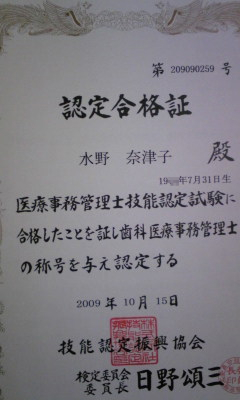 第 209090259 号
認定合格証
水野 奈津子 殿
年7月31日生
医療事務管理士技能認定試験に
合格したことを証し歯科医療事務管理士
の称号を与え認定する
2009年10月15日
技能認定振興協会
検定委員会
委員長 日野頌三